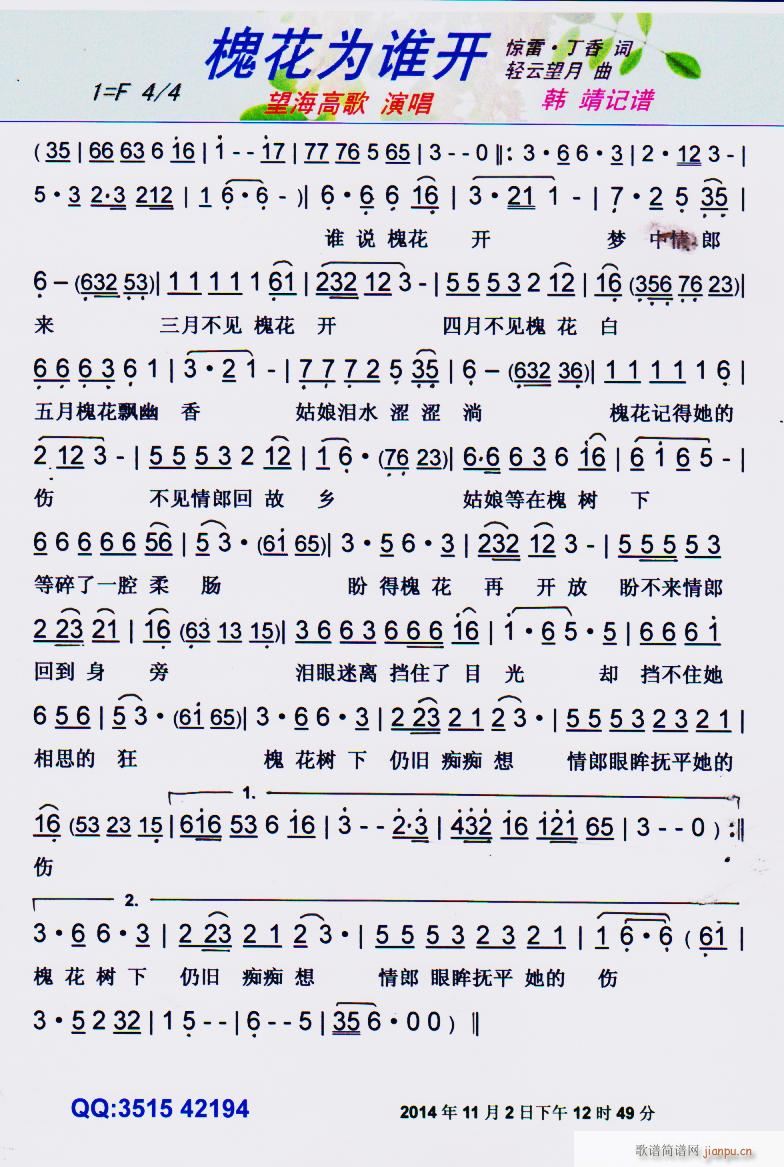 槐花为谁开
惊雷·丁香 词
轻云望月 曲
1=F 4/4
望海高歌 演唱
韩 靖记谱
( 35 | 66 63 6 16 | 1 - - 17 | 77 76 5 65 | 3 - - 0 ‖: 3 · 6 6 · 3 | 2 · 12 3 - |
5 · 3 2·3 212 | 1 6 · 6 - ) | 6 · 6 6 16 | 3 · 21 1 - | 7 · 2 5 35 |
谁 说 槐花 开 梦 中情 郎
6 – (632 53) | 1 1 1 1 1 61 | 232 12 3 - | 5 5 5 3 2 12 | 16 (356 76 23) |
来 三月不见 槐花 开 四月不见槐 花 白
6 6 6 3 6 1 | 3 · 2 1 - | 7 7 7 2 5 35 | 6 – (632 36) | 1 1 1 1 1 6 |
五月槐花飘幽 香 姑娘泪水 涩 涩 淌 槐花记得她的
2 12 3 - | 5 5 5 3 2 12 | 1 6 · (76 23) | 6·6 6 3 6 16 | 6 1 6 5 - |
伤 不见情郎回 故 乡 姑娘等在槐 树 下
6 6 6 6 6 56 | 5 3 · (61 65) | 3 · 5 6 · 3 | 232 12 3 - | 5 5 5 5 3
等碎了一腔 柔 肠 盼 得槐 花 再 开 放 盼不来情郎
2 23 21 | 16 (63 13 15) | 3 6 6 3 6 6 6 16 | 1 · 6 5 · 5 | 6 6 6 1
回到 身 旁 泪眼迷离 挡住了 目 光 却 挡不住她
6 5 6 | 5 3 · (61 65) | 3 · 6 6 · 3 | 2 23 2 1 2 3 · | 5 5 5 3 2 3 2 1 |
相思的 狂 槐 花树 下 仍旧 痴痴 想 情郎眼眸抚平她的
1.
16 (53 23 15 | 616 53 6 16 | 3 - - 2·3 | 432 16 121 65 | 3 - - 0 ) :‖
伤
2.
3 · 6 6 · 3 | 2 23 2 1 2 3 · | 5 5 5 3 2 3 2 1 | 1 6 · 6 ( 61 |
槐 花 树 下 仍旧 痴痴 想 情郎 眼眸抚平 她的 伤
3 · 5 2 32 | 1 5 - - | 6 - - 5 | 35 6 · 0 0 ) ‖
QQ:3515 42194
2014 年 11 月 2 日下午 12 时 49 分
歌谱简谱网
jianpu.cn